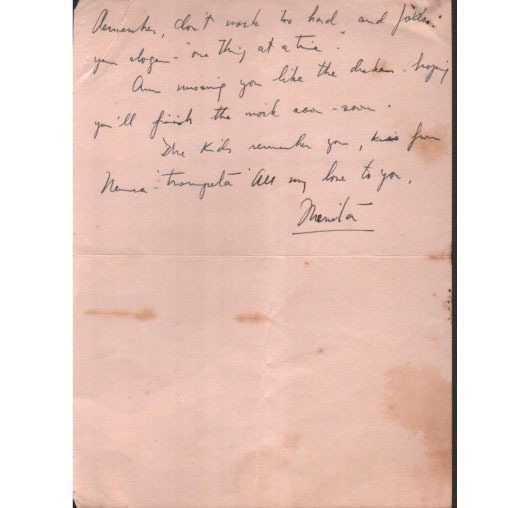 Remember, don't work too hard and follow
your slogan - "one thing at a time".
Am missing you like the dickens - hoping
you'll finish the work soon - soon.
The kids remember you, kiss from
"trompeta" All my love to you,